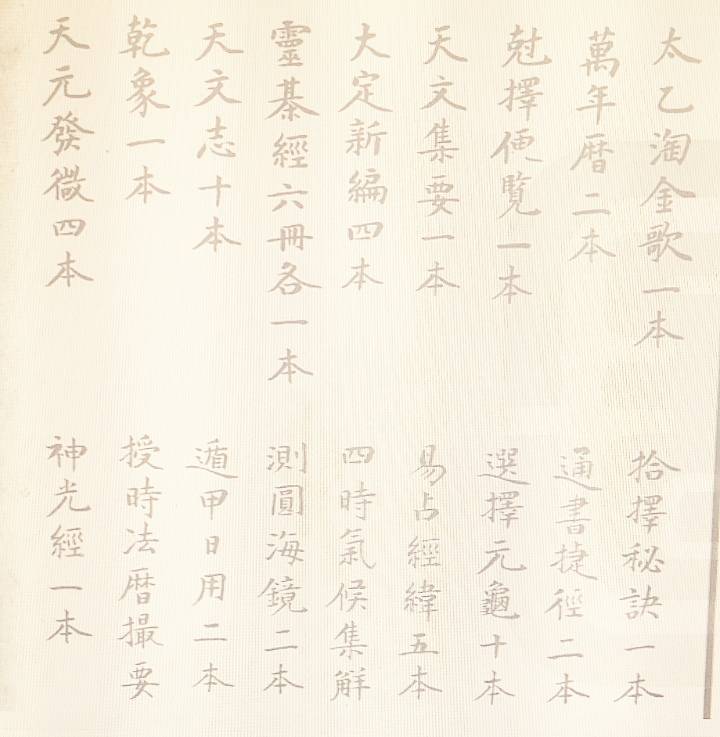 太乙淘金歌一本　拾擇秘訣一本
萬年暦二本　通書捷徑二本
尅擇便覧一本　選擇元龜十本
天文集要一本　易占經緯五本
大定新編四本　四時氣候集解
靈棊經六冊各一本　測圓海鏡二本
天文志十本　遁甲日用二本
乾象一本　授時法暦撮要
天元發微四本　神光經一本